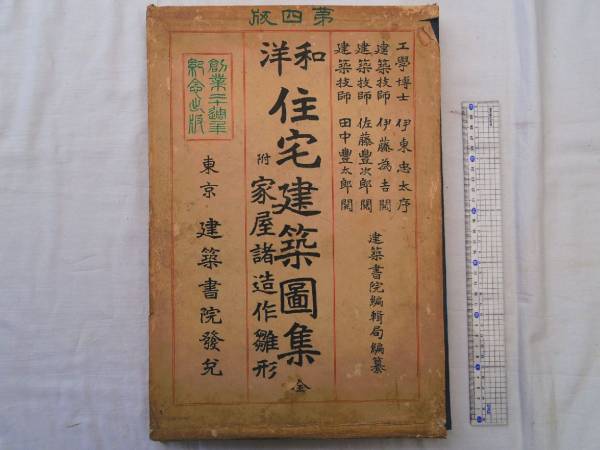 第四版
工學博士 伊東忠太序
建築技師 伊藤為吉閲
建築技師 佐藤豊次郎閲
建築技師 田中豊太郎閲
建築書院編輯局編纂
和洋
住宅建築圖集 全
附 家屋諸造作雛形
創業二十週年
紀念出版
東京 建築書院發兌